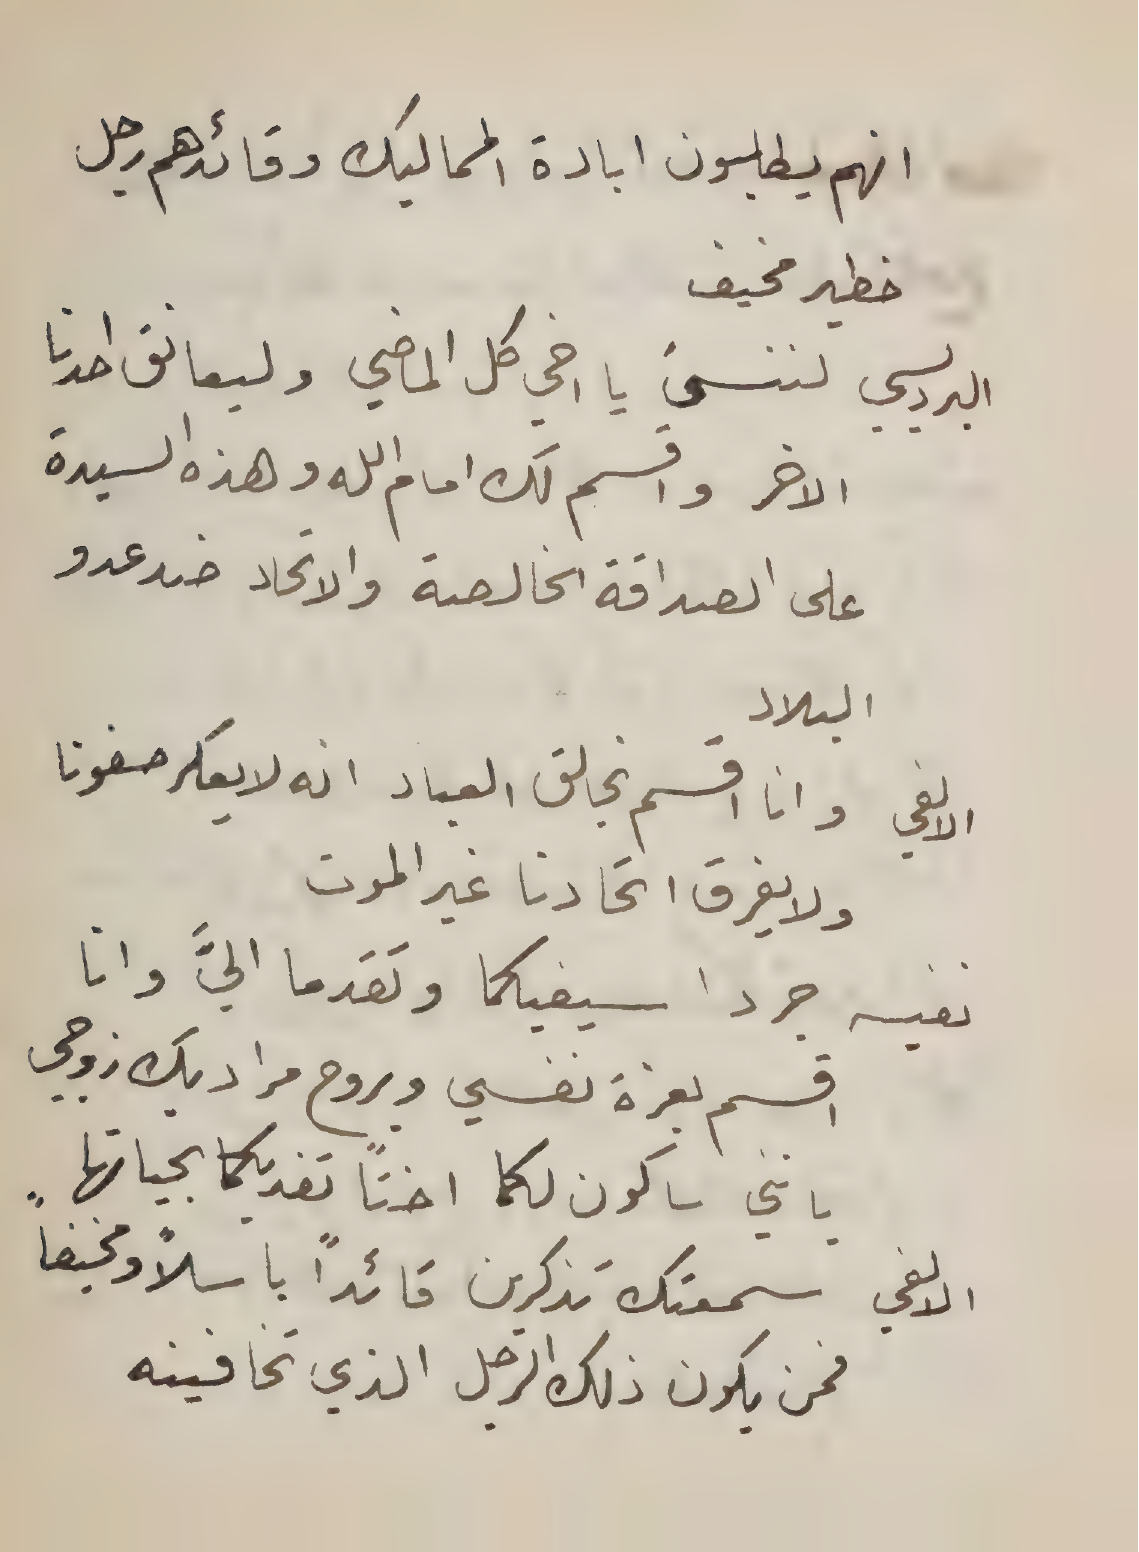 انهم يطلبون ابادة المماليك وقائدهم رجل
خطير مخيف
البرديسي لننسىَ يا اخي كل الماضي وليعانق احدنا
الاخر واقسم لك امام الله وهذه السيدة
على الصداقة الخالصة والاتحاد ضد عدو
البلاد
الالفي وانا اقسم بخالق العباد انه لا يعكر صفونا
ولا يفرق اتحادنا غير الموت
نفيسه جردا سيفيكما وتقدما اليَّ وانا
اقسم بعزة نفسي وبروح مراد بيك زوجي
بانني ساكون لكما اختاً تفديكما بحياتها
الالفي سمعتك تذكرين قائداً باسلاً ومخيفاً
فمن يكون ذلك الرجل الذي تخافينه